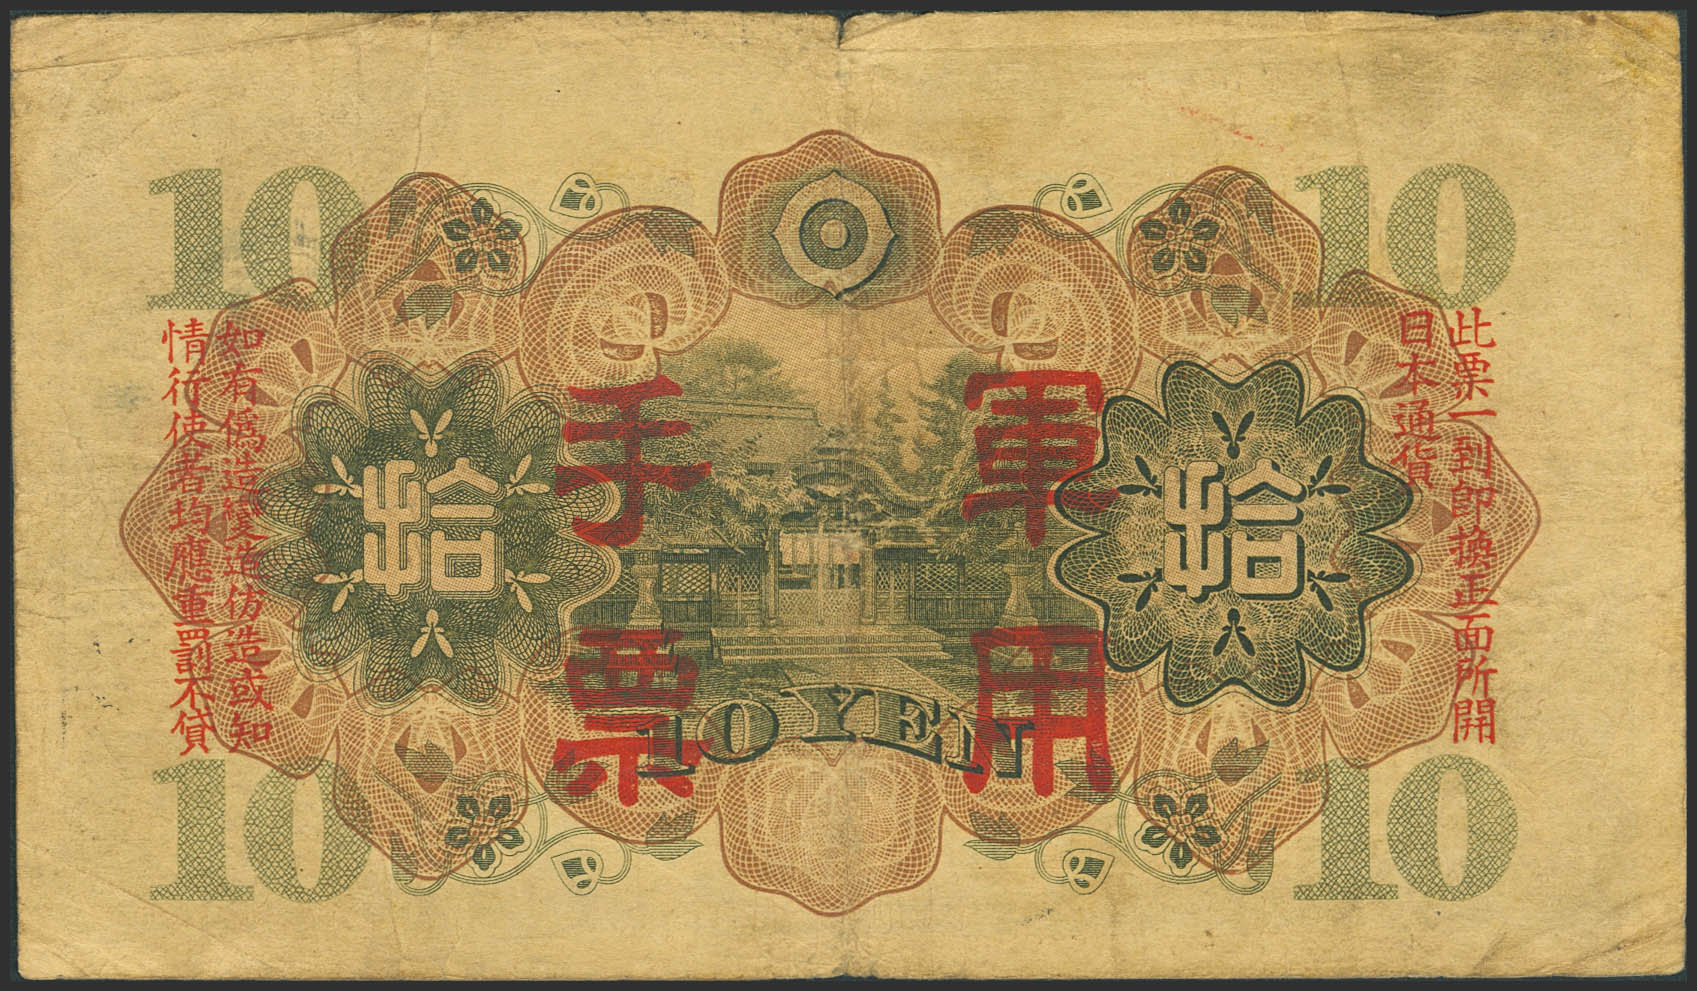 10
10
此票一到即換正面所開
日本通貨
軍用
手票
拾
拾
如有偽造變造仿造或知
情行使者均應重罰不貸
10 YEN
10
10